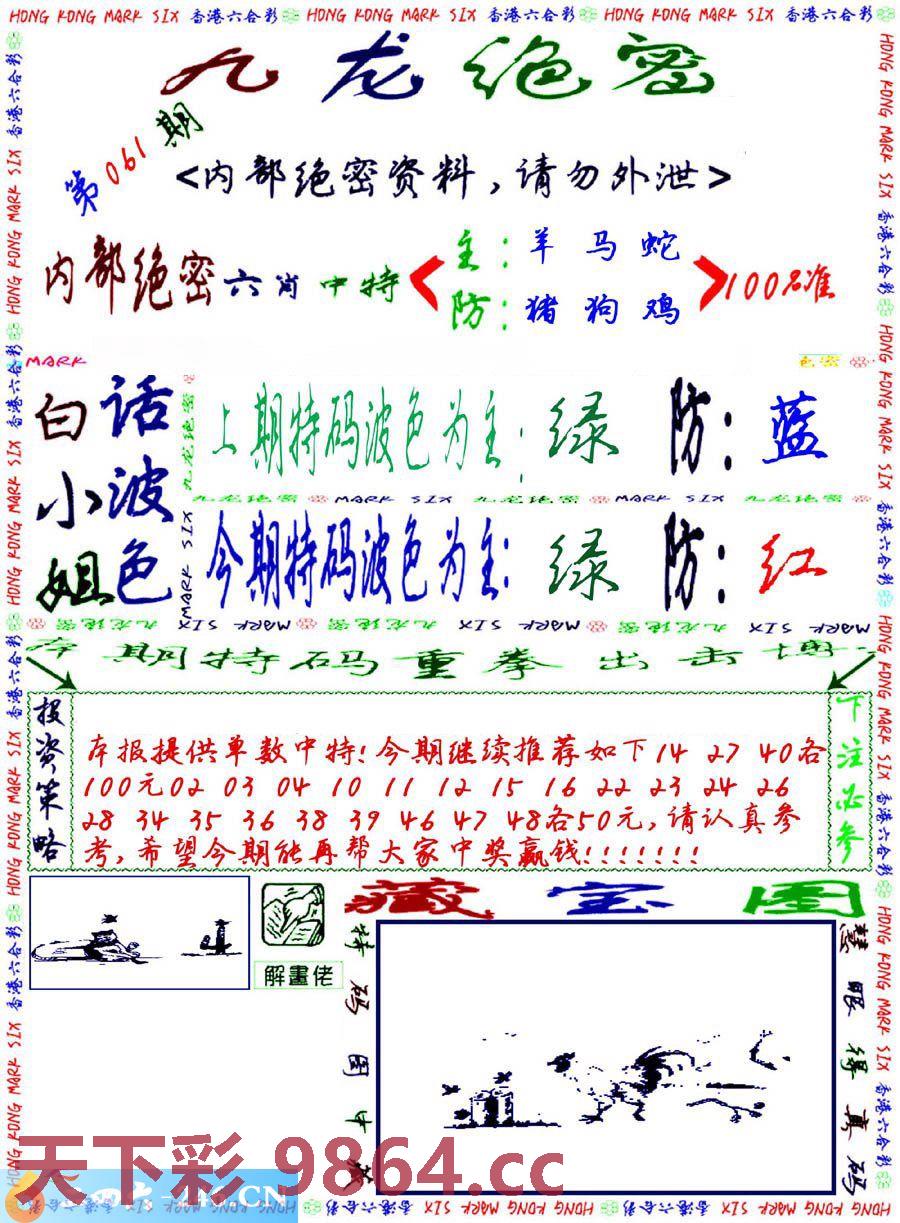 HONG KONG MARK SIX 香港六合彩 HONG KONG MARK SIX 香港六合彩 HONG KONG MARK SIX 香港六合彩
九龙绝密
第061期
<内部绝密资料,请勿外泄>
内部绝密六肖中特
主:羊马蛇
防:猪狗鸡
100%准
MARK
白小姐
话波色
上期特码波色为主:绿 防:蓝
九龙绝密 MARK SIX 九龙绝密 MARK SIX 九龙绝密
今期特码波色为主:绿 防:红
MARK SIX 九龙绝密 MARK SIX 九龙绝密 MARK SIX 九龙绝密
期特码重拳出击
投资策略
本报提供单数中特!今期继续推荐如下14 27 40各
100元02 03 04 10 11 12 15 16 22 23 24 26
28 34 35 36 38 39 46 47 48各50元,请认真参
考,希望今期能再帮大家中奖赢钱!!!!!!!
下注必参
解畫佬
藏宝图
特码图中藏
慧眼得真码
天下彩.9864.cc